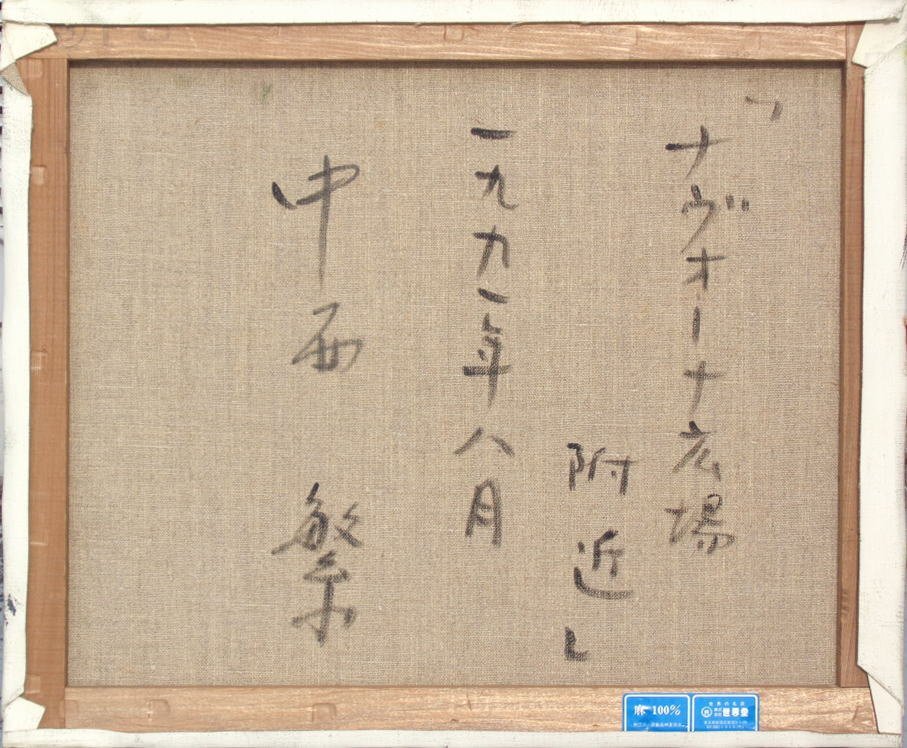 「ナヴォーナ広場
附近」
一九九一年八月
中西 繁
麻100%
世界の名画
世界堂